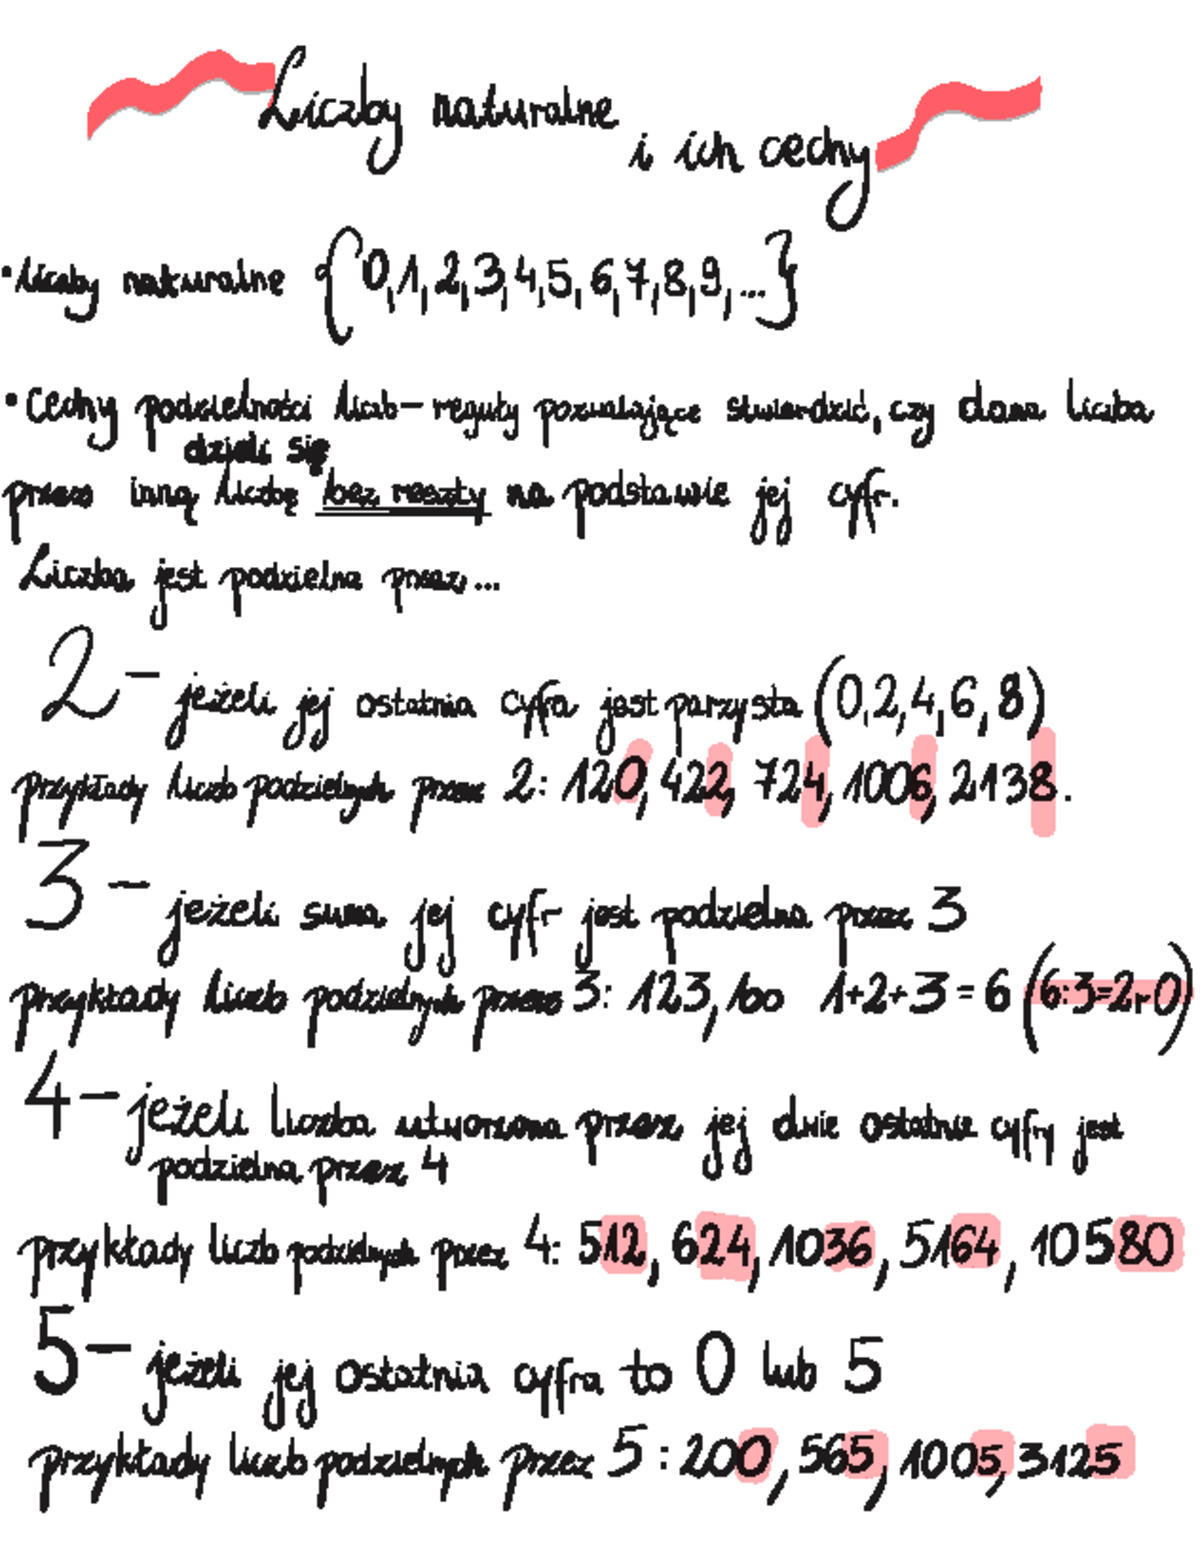 Liczby naturalne
i ich cechy
• liczby naturalne {0,1,2,3,4,5,6,7,8,9,...}
• Cechy podzielności liczb – reguły pozwalające stwierdzić, czy dana liczba
dzieli się
przez inną liczbę bez reszty na podstawie jej cyfr.
Liczba jest podzielna przez...
2 – jeżeli jej ostatnia cyfra jest parzysta (0,2,4,6,8)
przykłady liczb podzielnych przez 2: 120, 422, 724, 1006, 2138.
3 – jeżeli suma jej cyfr jest podzielna przez 3
przykłady liczb podzielnych przez 3: 123, bo 1+2+3=6 (6:3=2r0)
4 – jeżeli liczba utworzona przez jej dwie ostatnie cyfry jest
podzielna przez 4
przykłady liczb podzielnych przez 4: 512, 624, 1036, 5164, 10580
5 – jeżeli jej ostatnia cyfra to 0 lub 5
przykłady liczb podzielnych przez 5: 200, 565, 1005, 3125